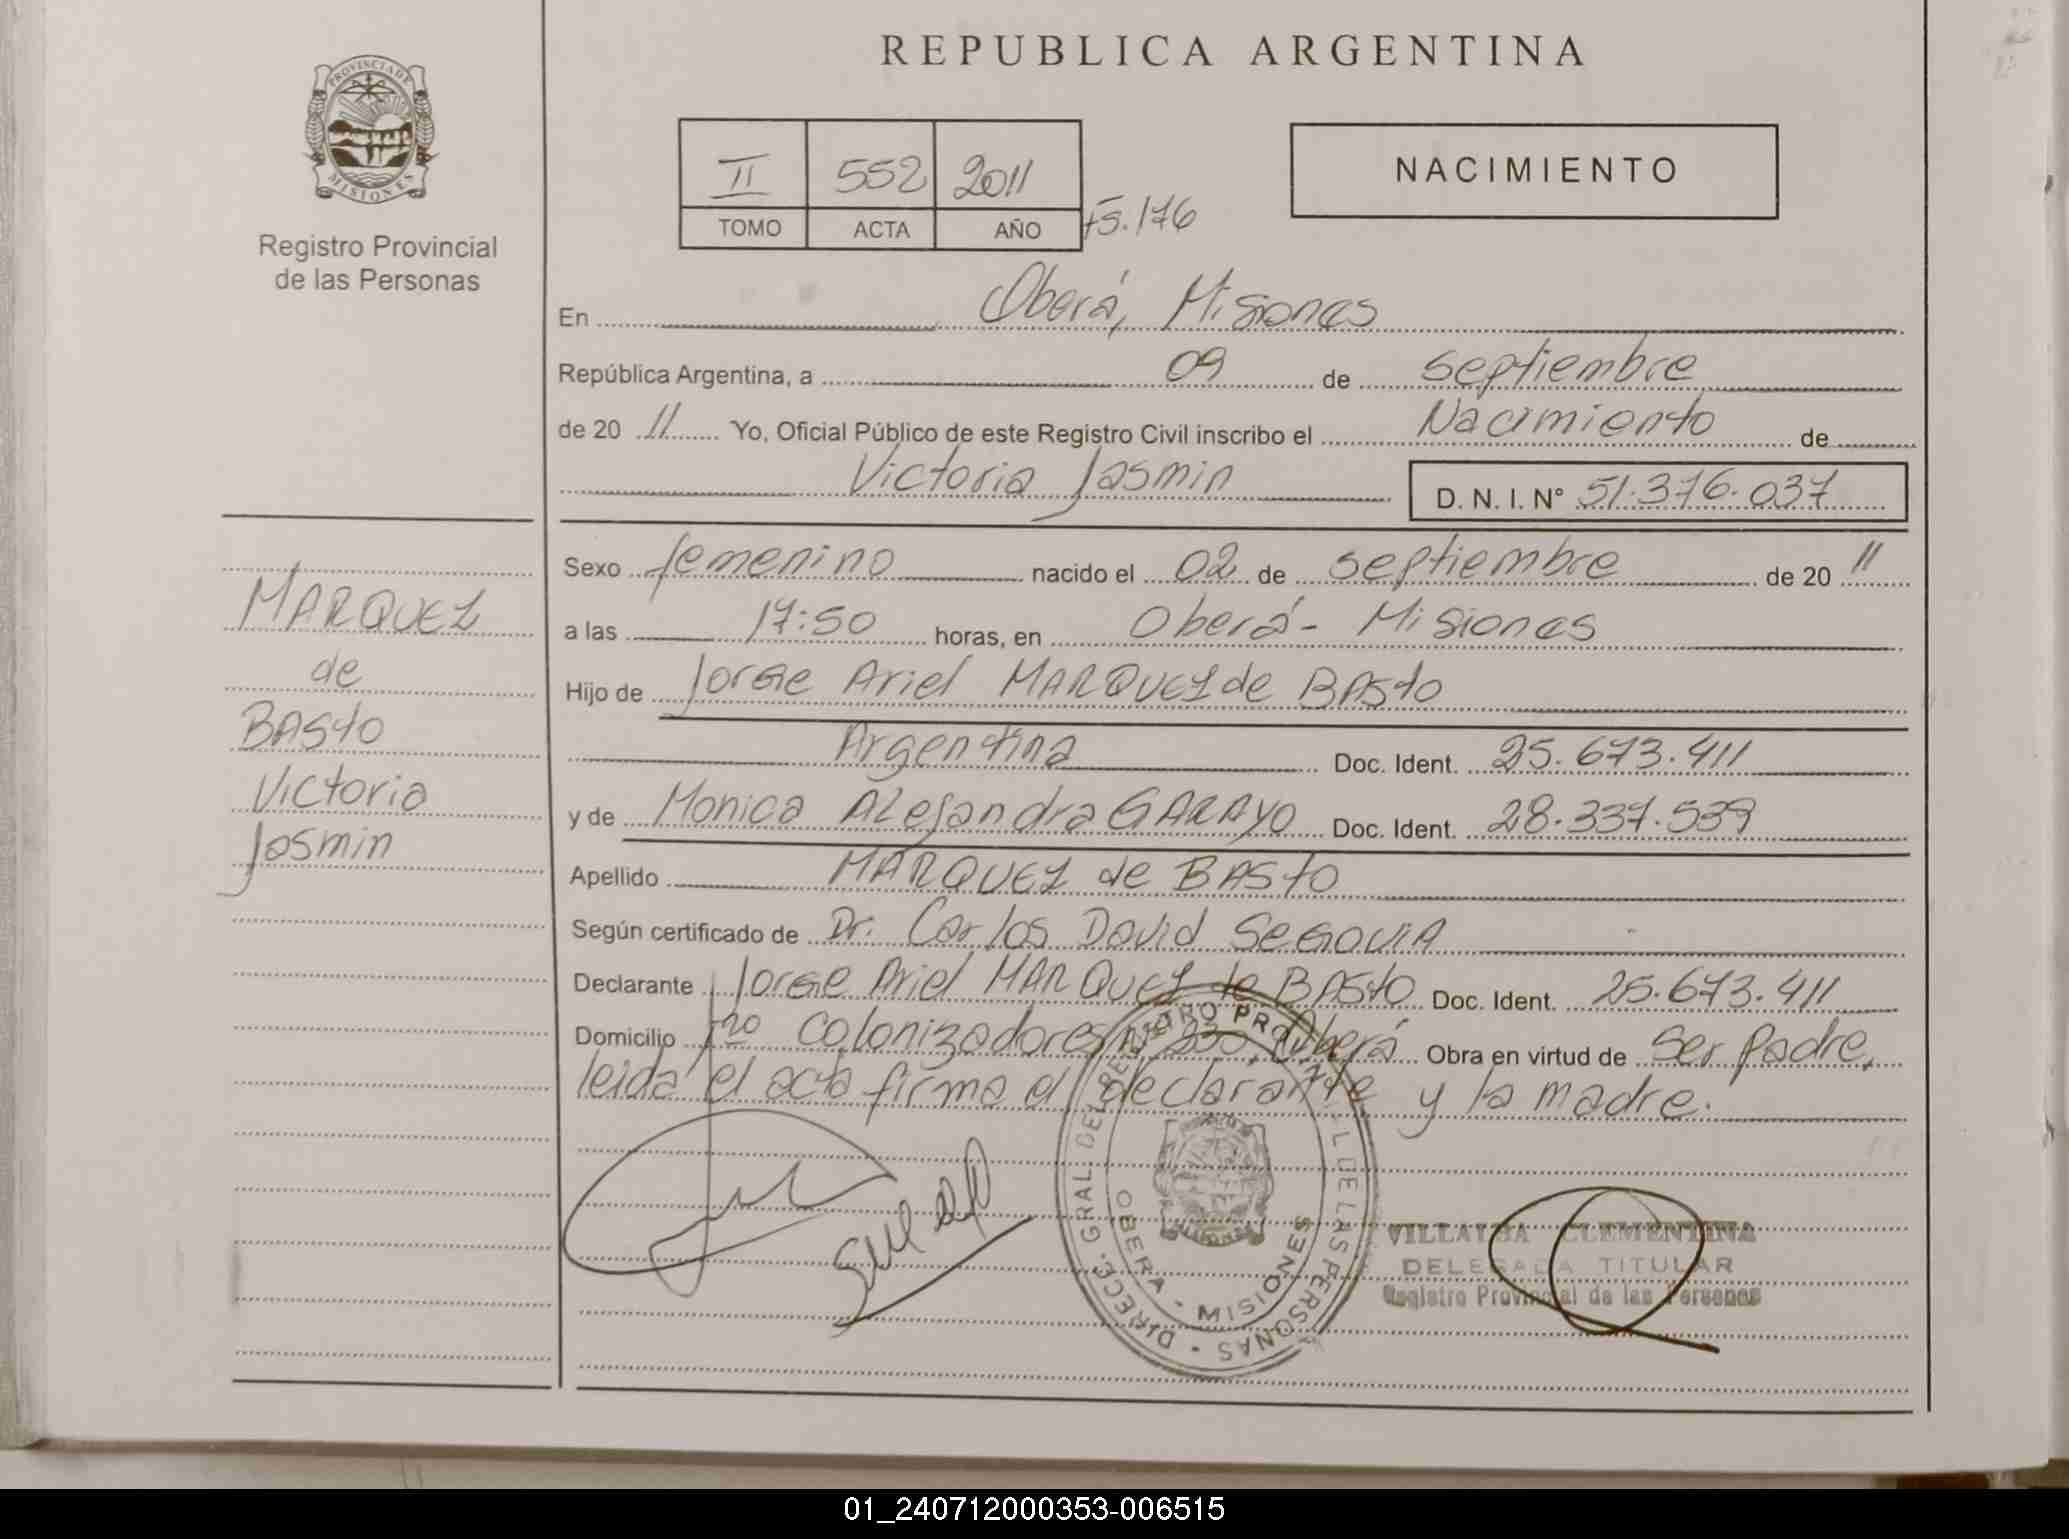 REPUBLICA ARGENTINA
PROVINCIA DE
MISIONES
Registro Provincial
de las Personas
II 552 2011
TOMO ACTA AÑO
Fs. 176
NACIMIENTO
En Oberá, Misiones
República Argentina, a 09 de septiembre
de 20 11 Yo, Oficial Público de este Registro Civil inscribo el Nacimiento de
Victoria Jasmin D. N. I. Nº 51.376.037
MARQUEZ
de
BASTO
Victoria
Jasmin
Sexo femenino nacido el 02 de septiembre de 20 11
a las 17:50 horas, en Oberá - Misiones
Hijo de Jorge Ariel MARQUEZ de BASTO
Argentina Doc. Ident. 25.673.411
y de Monica ALejandra GARAYO Doc. Ident. 28.337.539
Apellido MARQUEZ de BASTO
Según certificado de Dr. Carlos David SEGOVIA
Declarante Jorge Ariel MARQUEZ de BASTO Doc. Ident. 25.673.411
Domicilio Colonizadores Oberá Obra en virtud de ser padre,
leida el acta firma el declarante y la madre.
DIRECC. GRAL DEL REGISTRO PROVINCIAL DE LAS PERSONAS
OBERA - MISIONES
VILLALBA CLEMENTINA
DELEGADA TITULAR
Registro Provincial de las Personas
01_240712000353-006515